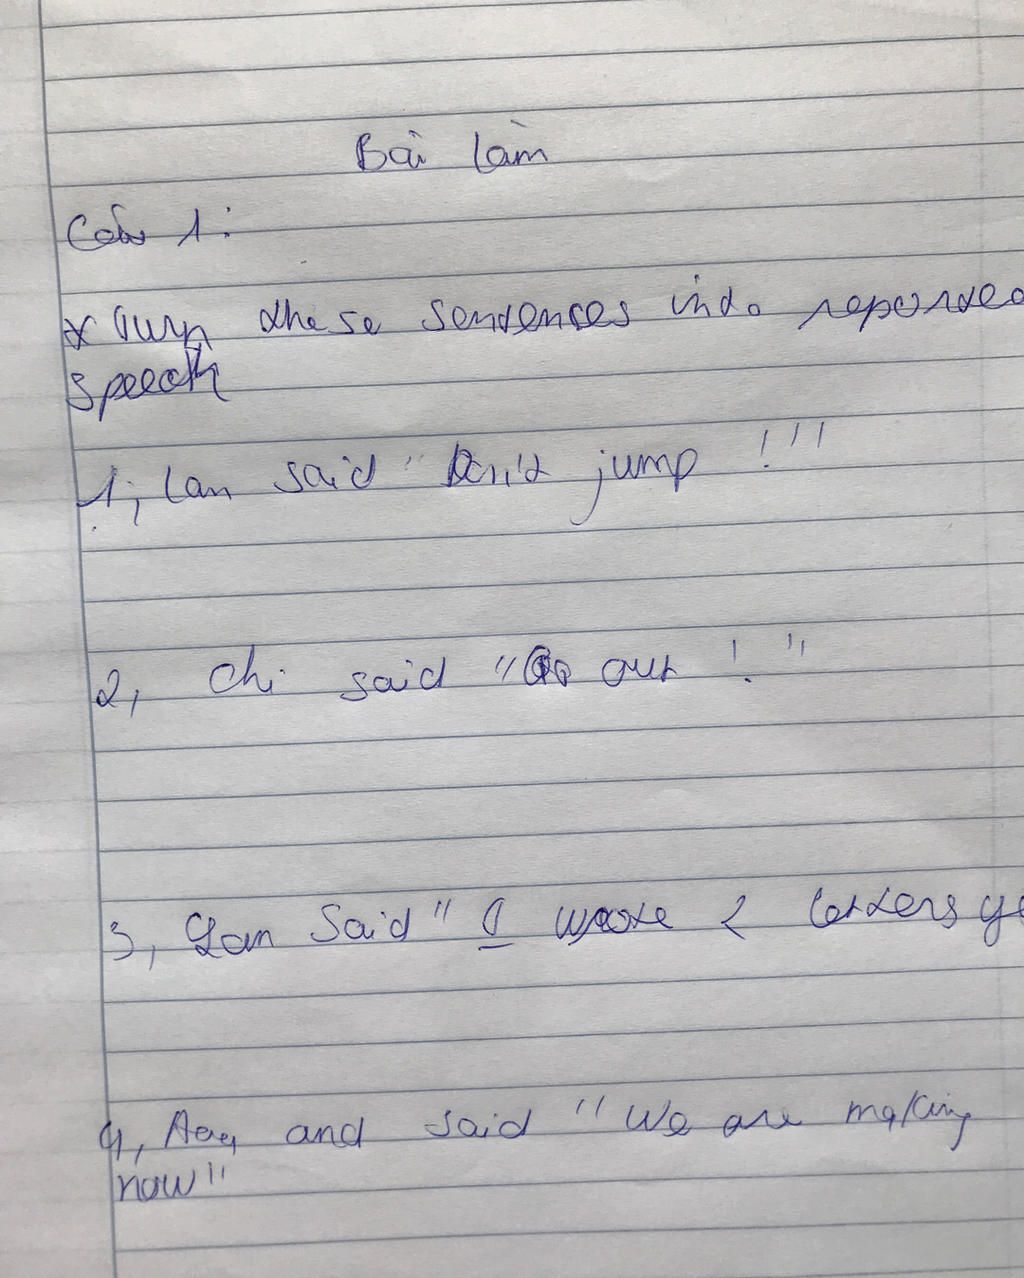 Bài làm
Câu 1:
* Turn these sentenses into reported
speech
1, Lan said " Don't jump !"
2, Chi said " Go out ! "
3, Lan said " I wrote 2 letters
4, and said " We are making
now"